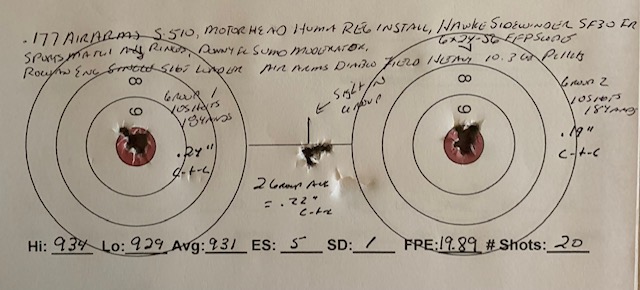 .177 AIR ARMS S-510, MOTORHEAD HUMA REG INSTALL, HAWKE SIDEWINDER SF30 ER
6x24-56 FFP
SPORTS MATCH ADJ RINGS, DONNY FL SUMO MODERATOR,
ROWAN ENG SINGLE SHOT LOADER AIR ARMS DIABLO FIELD HEAVY 10.3 GR PELLETS
GROUP 1
10 SHOTS
18 YARDS
8
9
.24"
C-t-C
SIGHT IN
GROUP
2 GROUP AVG
= .22"
C-t-C
8
9
GROUP 2
10 SHOTS
18 YARDS
.19"
C-t-C
Hi: 934 Lo: 929 Avg: 931 ES: 5 SD: 1 FPE: 19.89 # Shots: 20